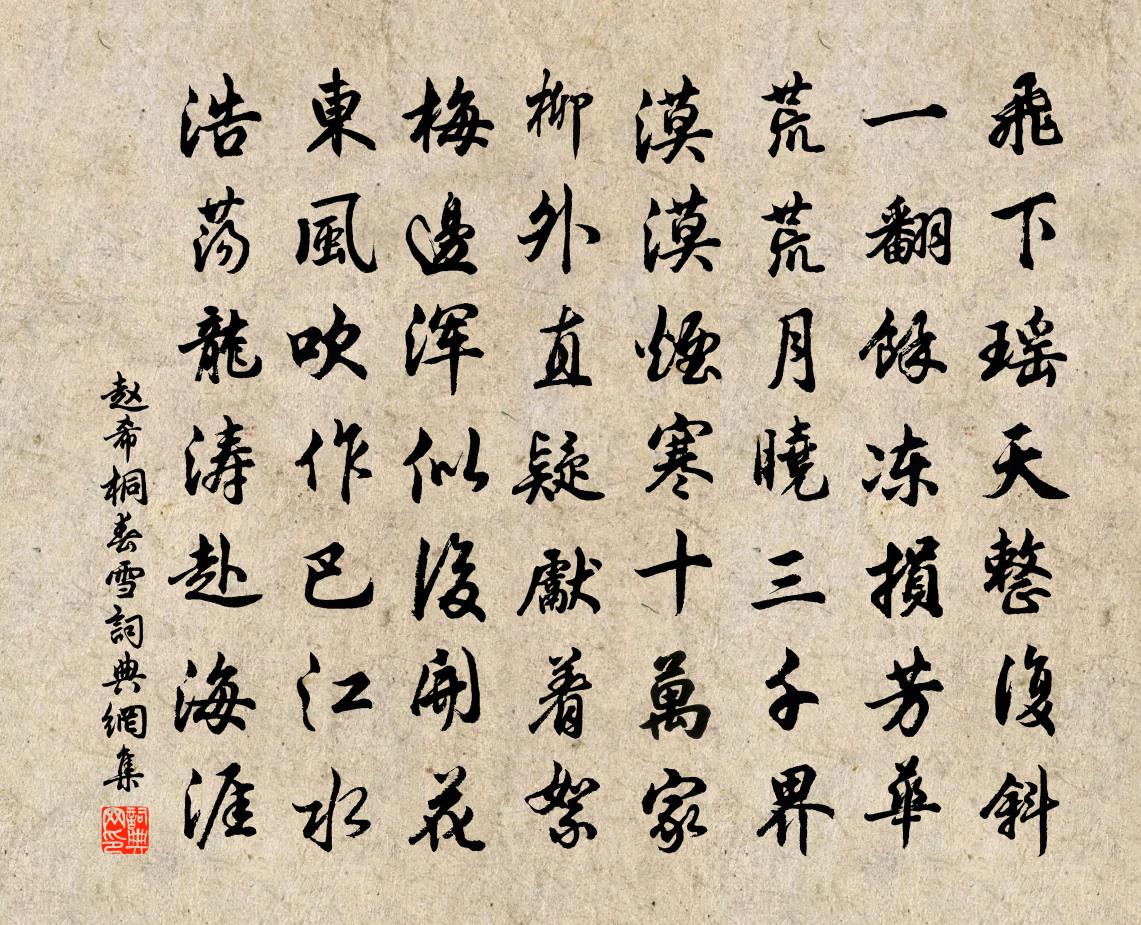 飛下瑶天整復斜
一翻餘冻損芳華
荒荒月曉三千界
漠漠煙寒十萬家
柳外直疑獻着絮
梅邊浑似後開花
東風吹作巴江水
浩荡龍涛赴海涯
赵希桐春雪詞典網集
詞典网印